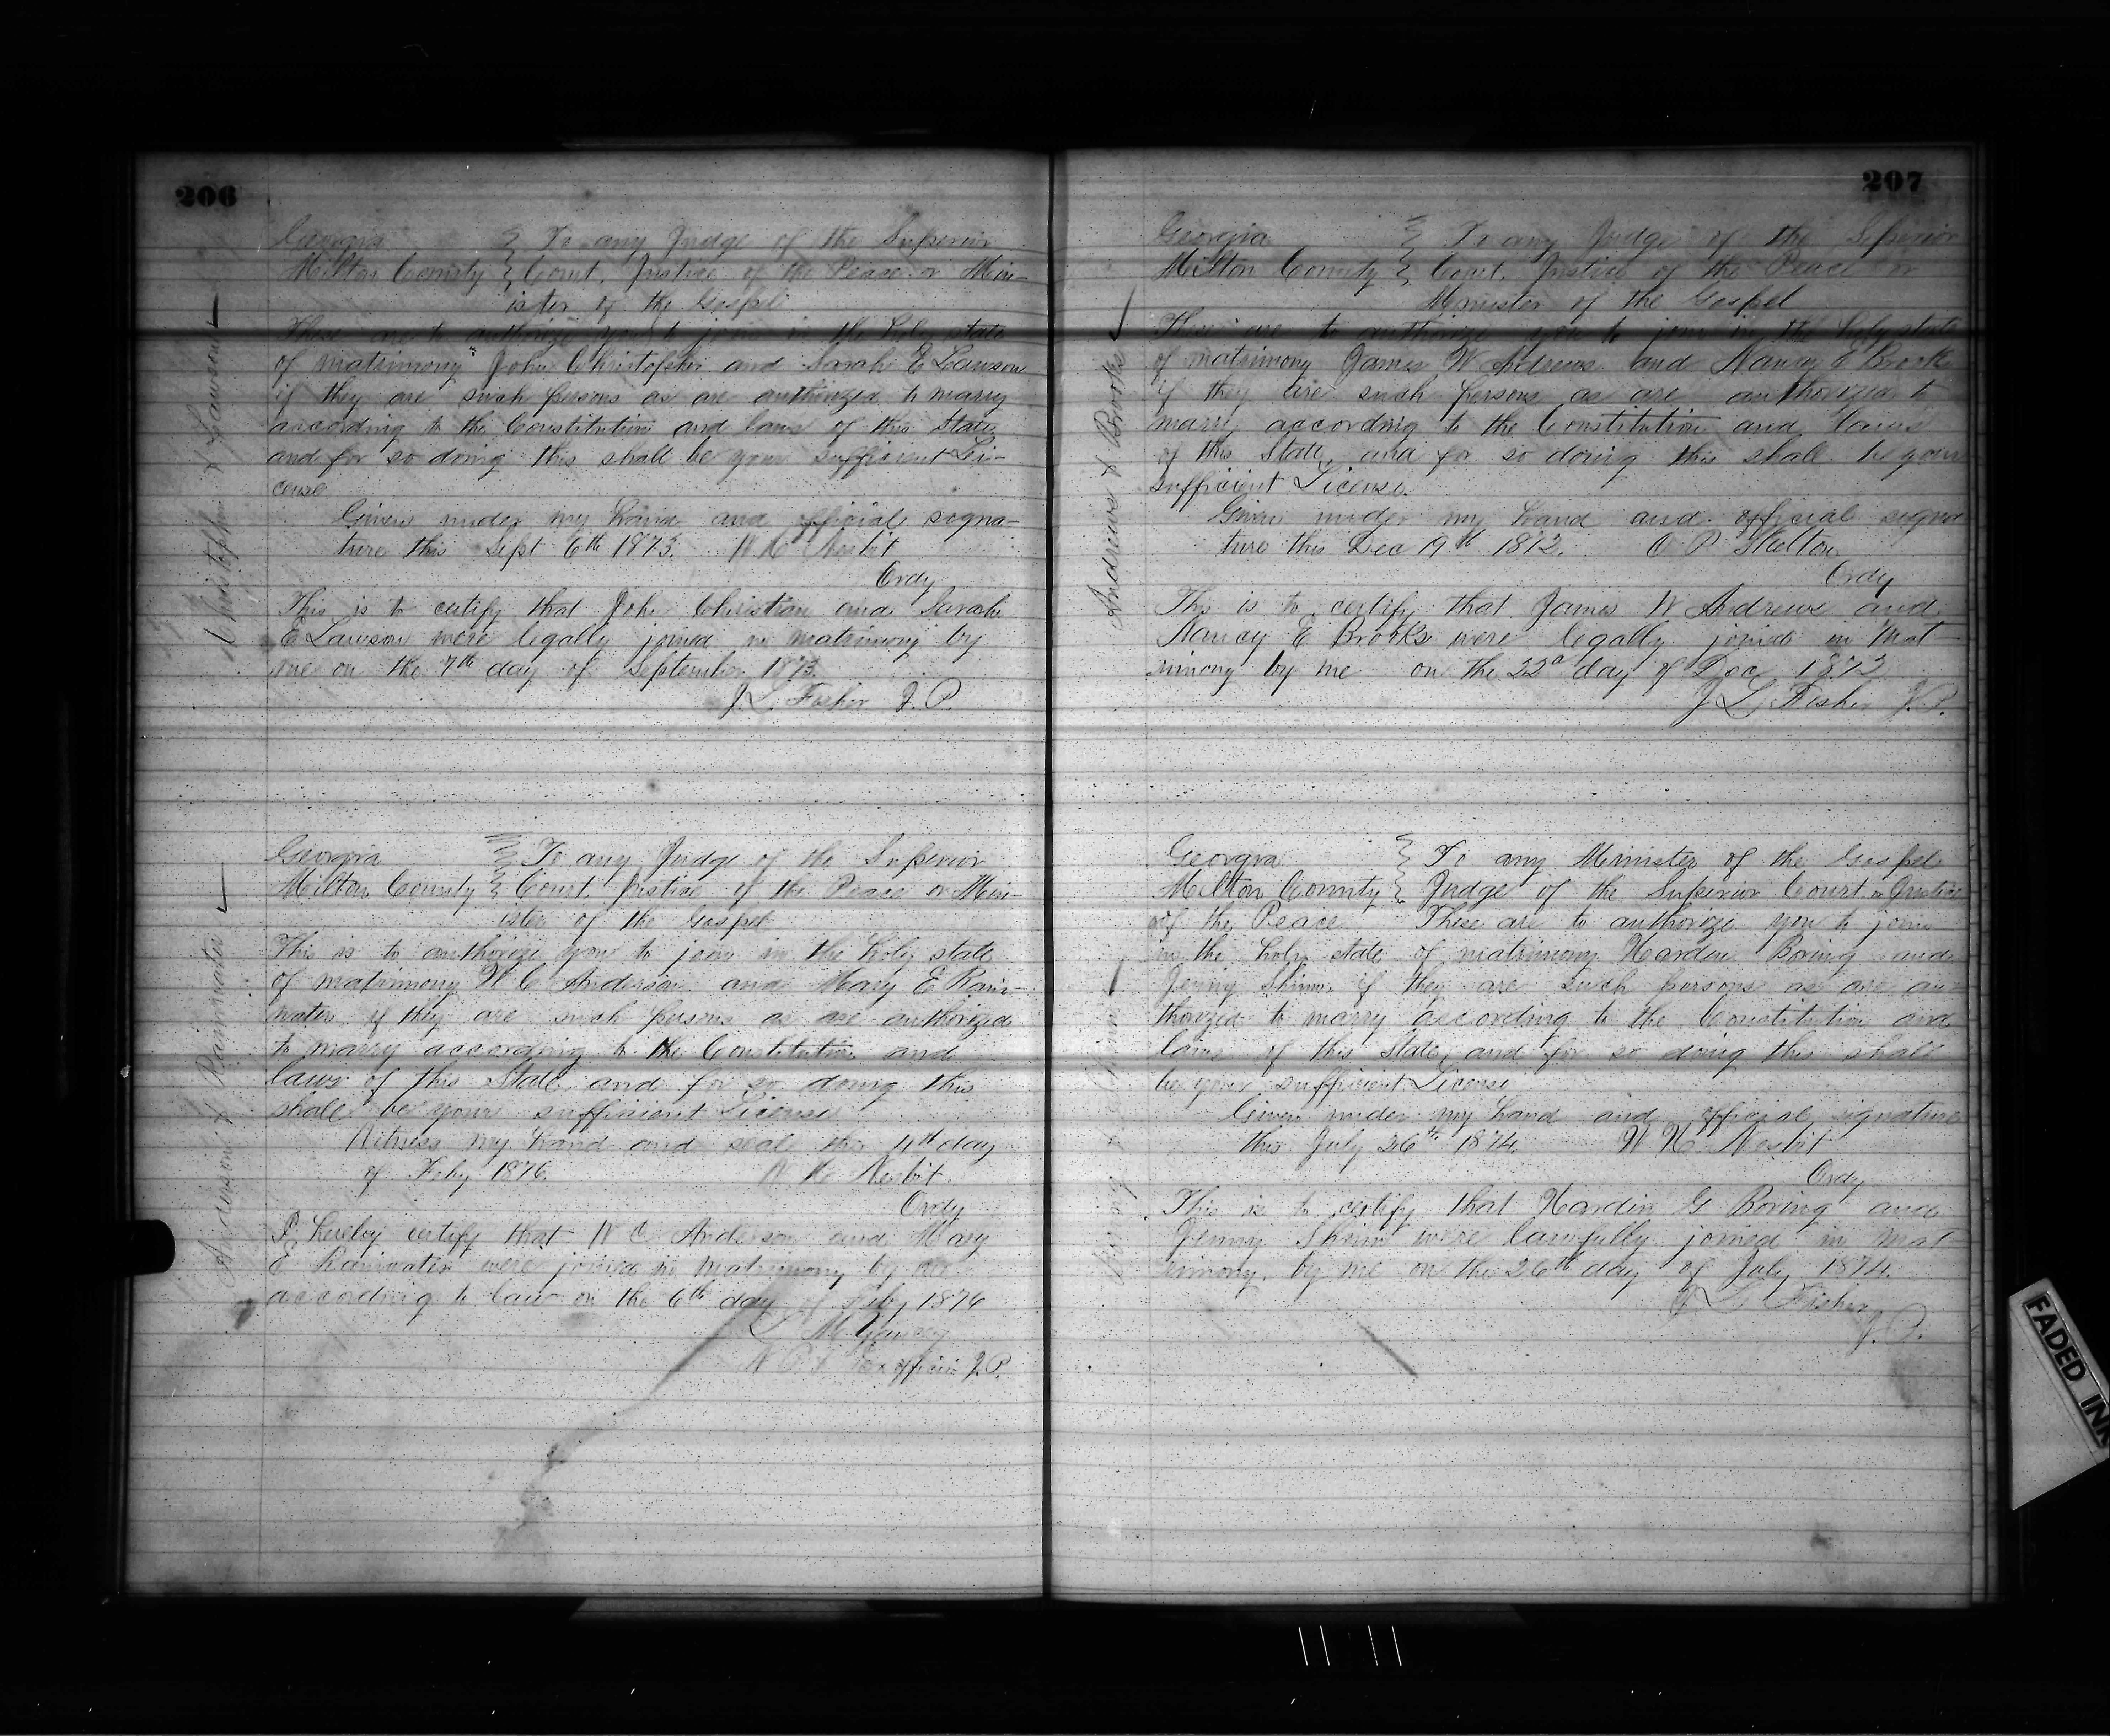 206
Christopher & Lawson
Georgia } To any Judge of the Superior
Milton County } Court, Justice of the Peace or Min-
ister of the Gospel
These are to authorize you to join in the holy state
of matrimony John Christopher and Sarah E Lawson
if they are such persons as are authorized to marry
according to the Constitution and laws of this State
and for so doing this shall be your sufficient Li-
cense
Given under my hand and official signa-
ture this Sept 6th 1873. W H Nesbit
Ordy
This is to certify that John Christian and Sarah
E Lawson were legally joined in matrimony by
me on the 7th day of September 1873.
J. L. Fisher J. P.
Anderson & Rainwater
Georgia } To any Judge of the Superior
Milton County } Court, Justice of the Peace or Min-
ister of the Gospel
This is to authorize you to join in the holy state
of matrimony W C Anderson and Mary E Rain-
water if they are such persons as are authorized
to marry according to the Constitution and
laws of this State and for so doing this
shall be your sufficient License
Witness my hand and seal this 4th day
of Feby 1876. W H Nesbit
Ordy
I hereby certify that W C Anderson and Mary
E Rainwater were joined in matrimony by me
according to law on the 6th day of Feby 1876
L M Yancey
N P & Ex officio J. P.
207
Andrews & Brooks
Georgia } To any Judge of the Sperior
Milton County } Court, Justice of the Peace or
Minister of the Gospel
These are to authorize you to join in the holy state
of matrimony James W Andrews and Nancy E Brooks
if they are such persons as are authorized to
marry according to the Constitution and laws
of this State, and for so doing this shall be your
sufficient License.
Given under my hand and official signa
ture this Dec 19th 1872. O P Skelton
Ordy
This is to certify that James W Andrews and
Nancy E Brooks were legally joined in mat
rimony by me on the 22d day of Dec 1872
J L Fisher J. P.
Boring &
Georgia } To any Minister of the Gospel
Milton County } Judge of the Superior Court or Justice
of the Peace These are to authorize you to join
in the holy state of matrimony Harden Boring and
Jenny Shinn if they are such persons as are au-
thorized to marry according to the Constitution and
laws of this State, and for so doing this shall
be your sufficient License
Given under my hand and official signature
this July 26th 1874. W H Nesbit
Ordy
This is to certify that Hardin G Boring and
Jenny Shinn were lawfully joined in mat
rimony, by me on the 26th day of July 1874.
J L Fisher
J. P.
FADED INK